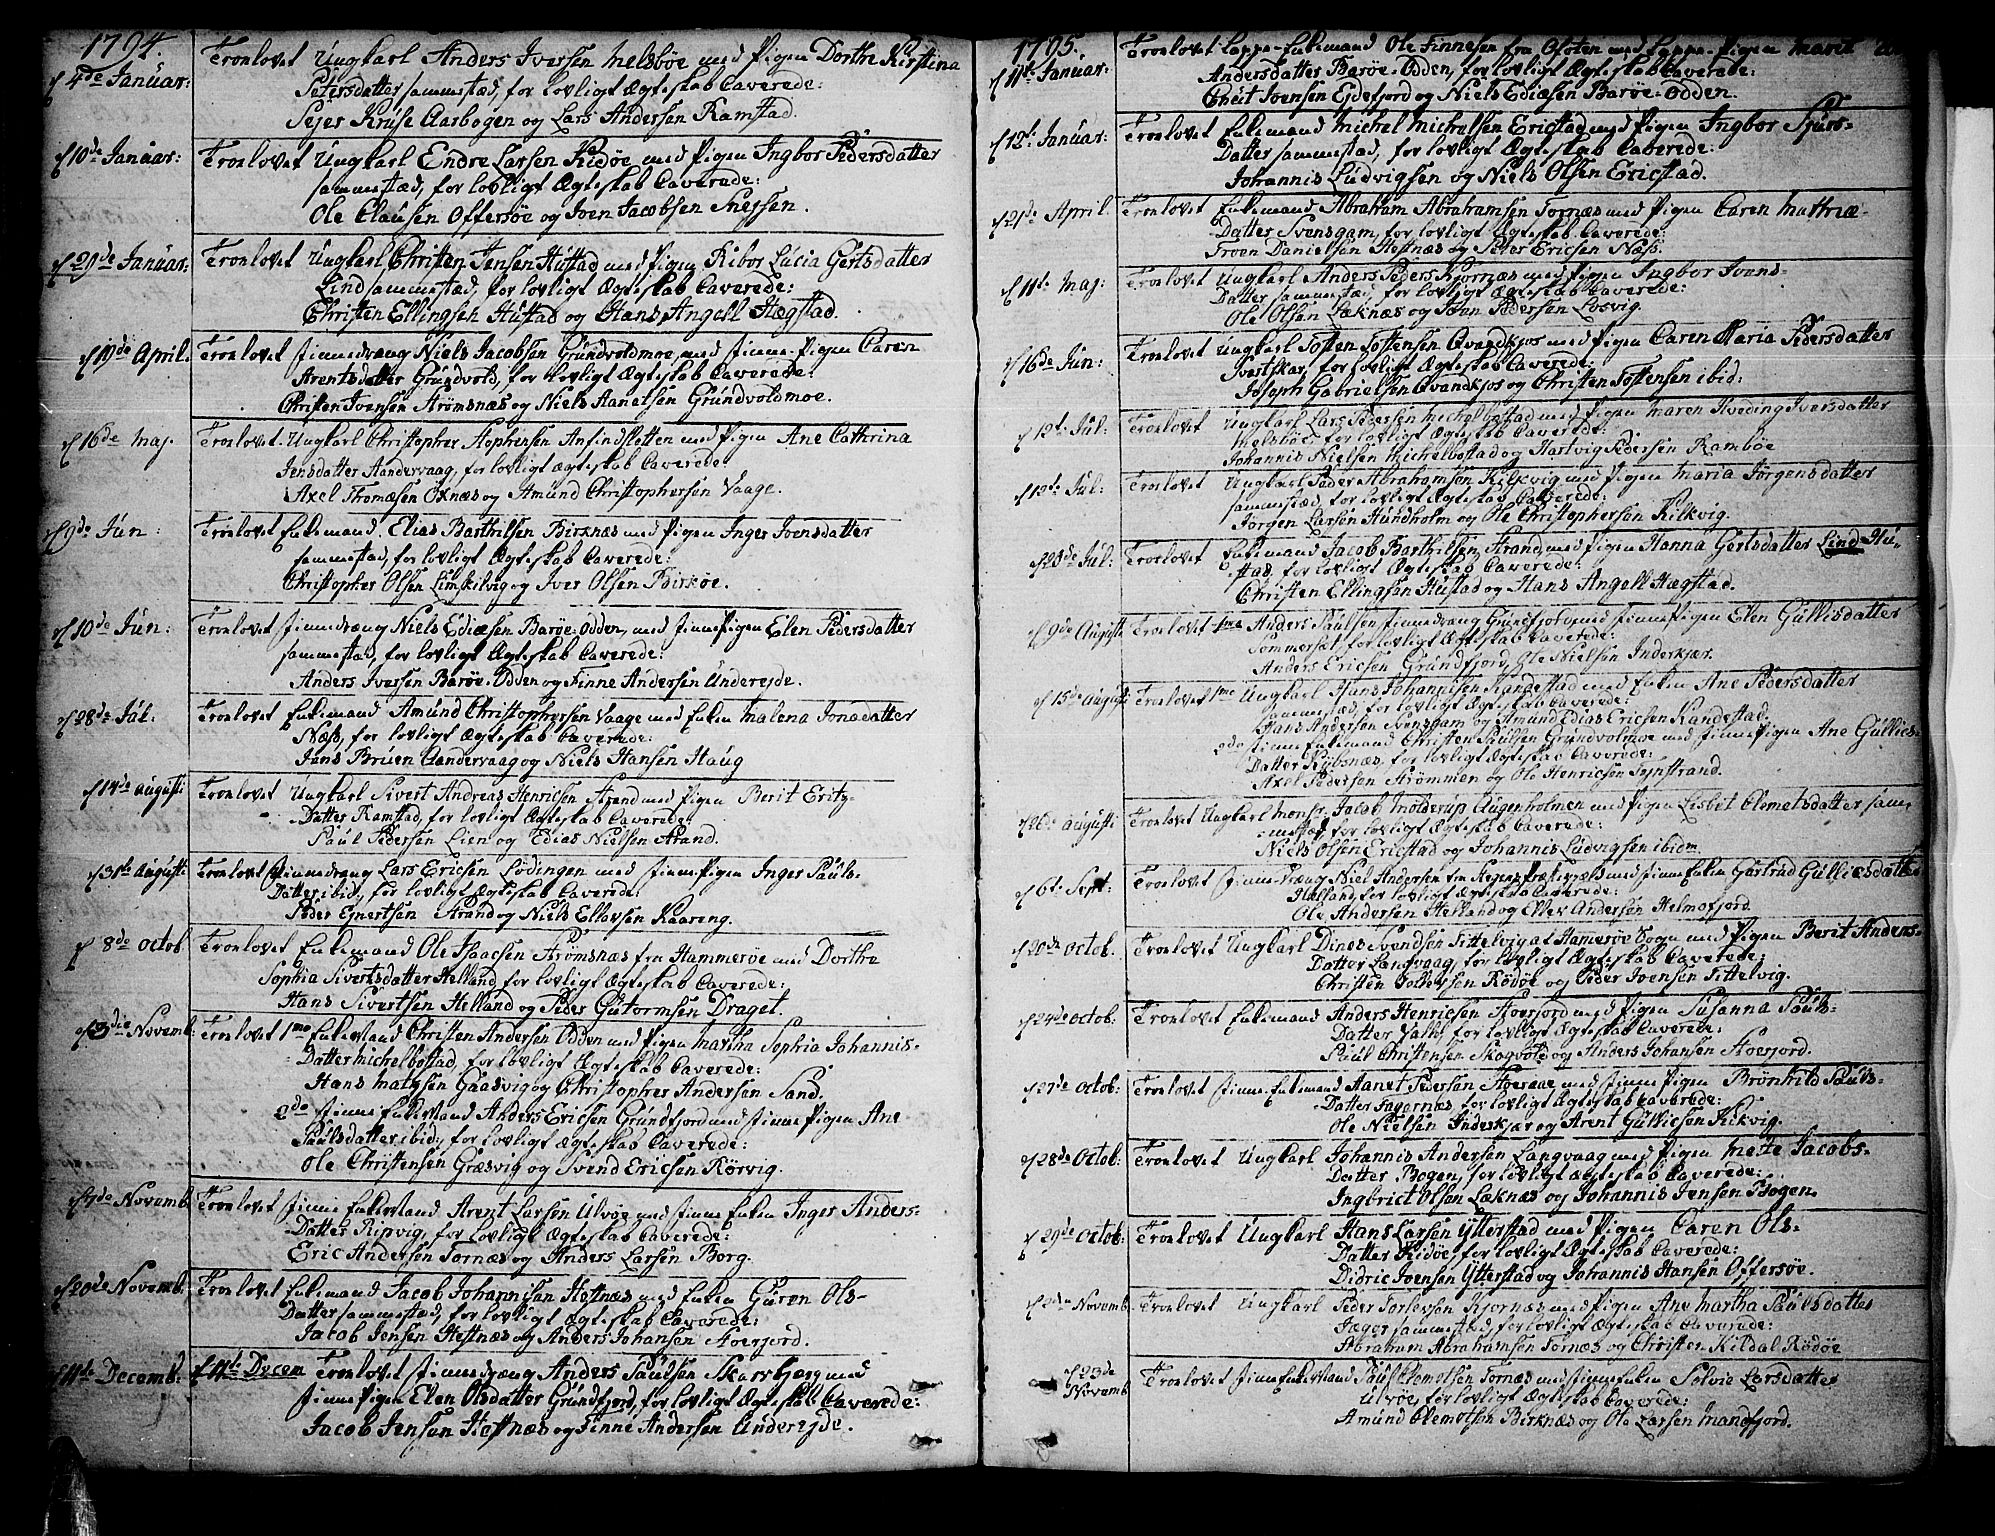 1794.
d 4de Januar: Trolovet Ungkarl Anders Iversen Melsböe med Pigen Dorthe Kirstina
Petersdatter sammestæd, for lovligt Ægteskab Caverede:
Pejer Kruse Aarbogen og Lars Andersen Ramstad.
d 10de Januar: Trolovet Ungkarl Endre Larsen Ridöe med Pigen Ingbor Pedersdatter
sammestæd, for lovligt Ægteskab Caverede:
Ole Clausen Offersöe og Iven Jacobsen Snessen.
d 29de Januar: Trolovet Ungkarl Christen Jensen Hustad med Pigen Ribor Lucia Gertsdatter
Lind sammestæd, for lovligt Ægteskab Caverede:
Christen Ellingsen Hustad og Hans Angell Hægstad.
d 19de April. Trolovet finnedræng Niels Jacobsen Grundvoldmoe, med finne-Pigen Caren
Arentsdatter Grundvold, for lovligt Ægteskab Caverede:
Christen Ivensen Strömsnæs og Niels Aanetsen Grundvoldmoe.
d 16de Maj. Trolovet Ungkarl Christopher Stephensen Ansindsletten med Pigen Ane Cathrina
Jensdatter Sandervaag, for lovligt Ægteskab Caverede:
Axel Thomæsen Oxnæs og Amund Christophersen Vaage.
d 9de Jun: Trolovet Enkemand Elias Barthelsen Birknæs med Pigen Inger Ivensdatter
sammestad, for lovligt Ægteskab Caverede:
Christopher Olsen Limskilvig og Iver Olsen Birköe.
d 10de Jun: Trolovet finnedræng Niels Ediæsen Baröe-Odden, med finnePigen Elen Pedersdatter
sammestad, for lovligt Ægteskab Caverede:
Anders Iversen Baröe-Odden og Finne Andersen Underejde.
d 28de Jul: Trolovet Enkemand Amund Christophersen Vaage med Enken Malena Jonsdatter
Næss, for lovligt Ægteskab Caverede:
Jens Bruen Sandervaag og Niels Hansen Haug
d 14de Augusti Trolovet Ungkarl Sivert Andreas Henricsen Strand med Pigen Berit Erity-
Datter Ramstad, for lovligt Ægteskab Caverede:
Paul Pedersen Lien og Edias Nielsen Strand.
d 31te Augusti Trolovet finnedræng Lars Ericsen Lödingen med finne-Pigen Inger Pauls-
Datter ibid, for lovligt Ægteskab Caverede:
Peder Ejnertsen Strand og Niels Ellevsen Kaaring.
d 8de Octob Trolovet Enkemand Ole Isaacsen Strömsnæs fra Hammeröe med Dorthe
Sophia Sivertsdatter Helland, for lovligt Ægteskab Caverede:
Hans Sivertsen Helland og Peder Gutormsen Draget.
d 3die Novemb: Trolovet 1mo Enkemand Christen Andersen Odden med Pigen Martha Sophia Johannis-
Datter Michelbostad, for lovligt Ægteskab Caverede:
Hans Matysen Gaasvig og Christopher Andersen Sand.
2do finne Enkemand Anders Ericsen Grundfjord med finne Pigen Ane
Paulsdatter ibid; for lovligt Ægteskab Caverede:
Ole Christensen Græsvig og Svend Ericsen Rörvig.
d 7de Novemb Trolovet finne Enkemand Arent Larsen Ulvöe med finne Enken Inger Anders-
Datter Ripvig, for lovligt Ægteskab Caverede:
Eric Andersen Tornæs og Anders Larsen Borg.
d 20de Novemb. Trolovet Enkemand Jacob Johannisen Hestnæs med Enken Guren Ols-
Datter sammestæd, for lovligt Ægteskab Caverede:
Jacob Jensen Hestnæs og Anders Johansen Stoerjord.
d 11te Decemb: d 11te Decem Trolovet finnedræng Anders Paulsen Skarsbjerg med
finne Pigen Elen Olsdatter Grundfjord, for lovligt Ægteskab Caverede:
Jacob Jensen Hestnæs og Finne Andersen Underejde.
1795.
d 11te Januar: Trolovet Lappe-Enkemand Ole Finnesen fra Ofoten med Lappe-Pigen Marit
Andersdatter Baröe-Odden, for lovligt Ægteskab Caverede:
Cnut Ivensen Ejdefjord og Niels Ediæsen Baröe-Odden.
d 12te Januar: Trolovet Enkemand Michel Michelsen Ericstad med Pigen Ingbor Sjurs-
Datter sammestad, for lovligt Ægteskab Caverede:
Johannis Ludvigsen og Niels Olsen Ericstad.
d 21de April. Trolovet Enkemand Abraham Abrahamsen Tornæs med Pigen Caren Mattriæ-
Datter Svensgam, for lovligt Ægteskab Caverede:
Troen Danielsen Hestnæs og Peter Ericsen Næss.
d 11te Maj: Trolovet Ungkarl Anders Peders Kjörnæs med Pigen Ingbor Ivens-
Datter sammestæd, for lovligt Ægteskab Caverede:
Ole Olsen Læknæs og Sören Pedersen Losvig.
d 16de Jun: Trolovet Ungkarl Tosten Tostensen Qvandkjos med Pigen Caren Maria Pedersdatter
Ivertskar, for lovligt Ægteskab Caverede:
Joseph Gabrielsen Qvandkjos og Christen Tostensen ibid:
d 12te Jul: Trolovet Ungkarl Lars Pedersen Michelbostad med Pigen Maren Kveding Iversdatter
Melsböe, for lovligt Ægteskab Caverede:
Johannis Nielsen Michelbostad og Hartvig Pedersen Ramböe
d 19de Jul: Trolovet Ungkarl Peder Abrahamsen Kilkvig med Pigen Maria Jörgensdatter
sammestæd, for lovligt Ægteskab Caverede:
Jörgen Larsen Hundholm og Ole Christophersen Kilkvig.
d 28de Jul: Trolovet Enkemand Jacob Barthelsen Strand med Pigen Hanna Gertsdatter Lind Hu-
stad, for lovligt Ægteskab Caverede:
Christen Ellingsen Hustad og Hans Angell Hægstad.
d 9de Augusti Trolovet 1mo Anders Paulsen finnedræng Grundfjord med finne Pigen Elen Gullisdatter
Sommerset, for lovligt Ægteskab Caverede:
Anders Ericsen Grundfjord, Ole Nielsen Inderkjær.
d 15de Augusti Trolovet 1mo Ungkarl Hans Johannisen Kandestad med Enken Ane Pedersdatter
sammestæd, for lovligt Ægteskab Caverede:
Hans Andersen Svensgam og Amund Edias Ericsen Kandestad.
2do finne Enkemand Christen Paulsen Grundvolmoe med finne Pigen Ane Gullics-
Datter Rybsnæs, for lovligt Ægteskab Caverede:
Axel Pedersen Strömmen og Ole Henricsen Fynstrand.
d 26de Augusti Trolovet Ungkarl Monsr. Jacob Molderup Augenholmen med Pigen Lisbet Clemetsdatter sam-
mestæd, for lovligt Ægteskab Caverede:
Niels Olsen Ericstad og Johannis Ludvigsen ibidm
d 6te Sept: Trolovet finne-Dræng Niel Andersen fra Stegens Præstegjeld med finne Enken Gærtrud Gullicsdatter
Helland, for lovligt Ægteskab Caverede:
Ole Andersen Helland og Ellev Andersen Helmofjord.
d 20de Octob: Trolovet Ungkarl Dines Svendsen Fittelvig af Hameröe Sogn med Pigen Berit Anders-
Datter Langvaag, for lovligt Ægteskab Caverede:
Christen Tollevsen Rödöe og Peder Ivensen Fittelvig.
d 24de Octob: Trolovet Enkemand Anders Henricsen Stoerjord med Pigen Susanna Pauls-
Datter Valle, for lovligt Ægteskab Caverede:
Paul Christensen Skogvold og Anders Johansen Stoerjord.
d 27de Octob: Trolovet finne Enkemand Aanet Pedersen Stoeraae med finne Pigen Brönhild Pauls-
Datter Fagernæs, for lovligt Ægteskab Caverede:
Ole Nielsen Inderkjær og Arent Gullicsen Kilkvig.
d 28de Octob: Trolovet Ungkarl Johannis Andersen Langvaag med Pigen Mette Jacobs-
Datter Bogen, for lovligt Ægteskab Caverede:
Ingbrict Olsen Læknæs og Johannis Jensen Bogen.
d 29de Octob: Trolovet Ungkarl Hans Larsen Ytterstad med Pigen Caren Ols-
Datter Ridöe, for lovligt Ægteskab Caverede:
Didric Ivensen Ytterstad og Johannis Hansen Offersöe.
d 2den Novemb. Trolovet Ungkarl Peder Torlevsen Kjörnæs med Pigen Ane Martha Paulsdatter
Jæger sammestæd, for lovligt Ægteskab Caverede:
Abraham Abrahamsen Tornæs og Christen Kildal Rödöe
d 23de Novemb Trolovet finne Enkemand Paul Clemetsen Tornæs med finne Enken Solvie Larsdatter
Ulvöe, for lovligt Ægteskab Caverede:
Amund Clemetsen Birknæs og Ole Larsen Mandfjord.